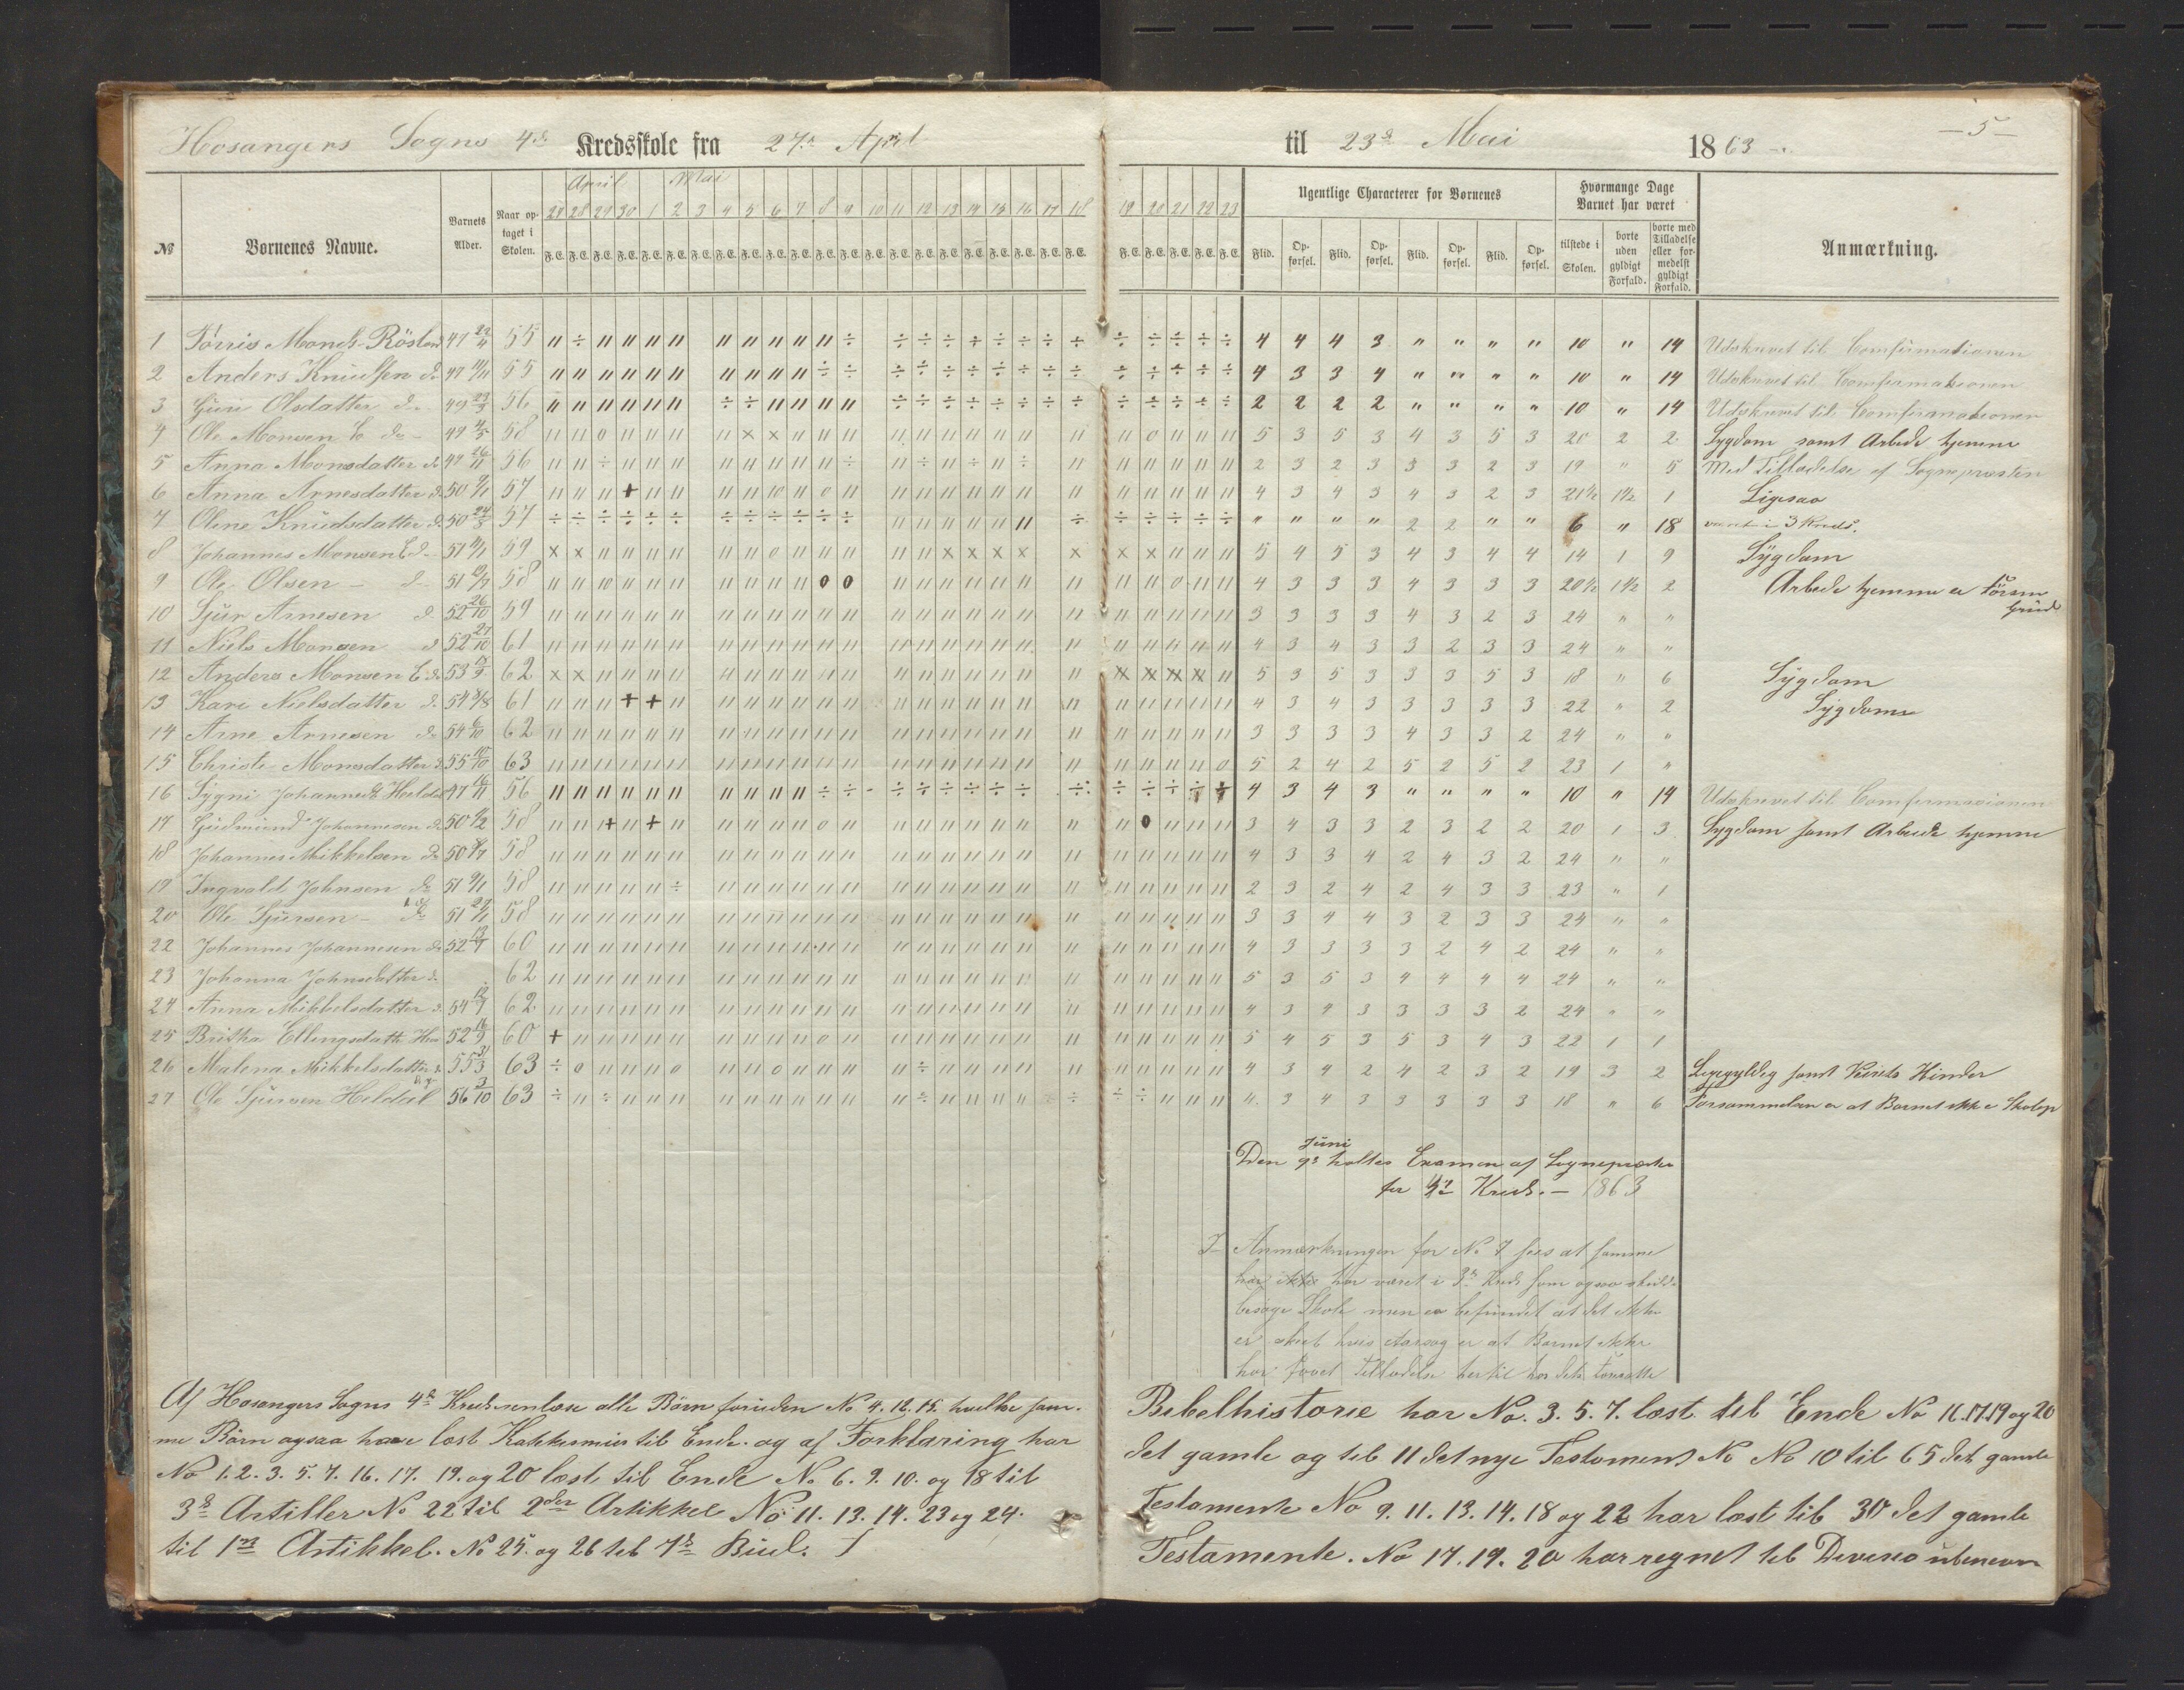 Hosangers Sogns 4de Kredsskole fra 27de April til 23de Mai 1863 — 5 —
April Mai
No Børnenes Navne. Barnets Alder. Naar optaget i Skolen. 27 28 29 30 1 2 3 4 5 6 7 8 9 10 11 12 13 14 15 16 17 18 19 20 21 22 23 Ugentlige Characterer for Børnenes Hvormange Dage Barnet har været Anmærkning.
F. E. F. E. F. E. F. E. F. E. F. E. F. E. F. E. F. E. F. E. F. E. F. E. F. E. F. E. F. E. F. E. F. E. F. E. F. E. F. E. F. E. F. E. F. E. F. E. F. E. F. E. F. E. Flid. Opførsel. Flid. Opførsel. Flid. Opførsel. Flid. Opførsel. tilstede i Skolen. borte uden gyldigt Forfald. borte med Tilladelse eller formedelst gyldigt Forfald.
1 Törris Monss. Rösland 47 55 4 4 4 3 " " " " 10 " 14 Udskrevet til Comfirmationen
2 Anders Knudsen do 55 4 3 3 4 " " " " 10 " 14 Udskrevet til Comfirmationen
3 Guri Olsdatter do 49 56 2 2 2 2 " " " " 10 " 14 Udskrevet til Comfirmationen
4 Ole Monsen E do 49 58 5 3 5 3 4 3 5 3 20 2 2 Sygdom samt Arbeide hjemme
5 Anna Monsdatter do 56 2 3 2 3 3 3 2 3 19 " 5 Med Tilladelse af Sognepræsten
6 Anna Arnesdatter do 50 57 4 3 4 3 4 3 2 3 21½ 1½ 1 Ligesaa
7 Olene Knudsdatter do 50 57 " " " " 2 2 " " 6 " 18 været i 3 Kreds.
8 Johannes Monsen E do 51 59 5 4 5 3 4 3 4 4 14 1 9 Sÿgdom
9 Ole Olsen do 51 58 4 3 3 3 4 3 3 3 20½ 1½ 2 Arbeide hjemme er
10 Sjur Arnesen do 52 26/10 59 3 3 3 3 4 3 2 3 24 " "
11 Niels Monsen do 52 27/10 61 4 3 4 3 3 2 3 3 24 " "
12 Anders Monsen E do 53 62 5 3 5 3 3 3 5 3 18 " 6 Sÿgdom
13 Kari Nielsdatter do 54 61 4 3 4 3 3 3 3 3 22 " 2 Sÿgdom
14 Arne Arnesen do 54 6/10 62 3 3 3 3 4 3 3 2 24 " "
15 Christi Monsdatter do 55 10/10 63 5 2 4 2 5 2 5 2 23 1 "
16 Sÿgni Johannesd. Heldal 47 16/11 56 4 3 4 3 " " " " 10 " 14 Udskrevet til Comfirmasionen
17 Gudmund Johannesen do 50 58 3 4 3 3 2 3 2 2 20 1 3 Sygdom samt Arbeide hjemme
18 Johannes Mikkelsen do 50 58 4 3 3 4 2 4 3 2 24 " "
19 Ingvald Johnsen do 51 58 2 3 2 4 2 4 3 3 23 " 1
20 Ole Sjursen do 51 58 3 3 4 4 3 2 3 3 24 " "
22 Johannes Johannesen do 52 60 4 3 3 3 3 2 4 2 24 " "
23 Johanna Johnsdatter do 62 5 3 5 3 4 4 4 4 24 " "
24 Anna Mikkelsdatter do 54 62 4 3 4 3 3 3 3 2 24 " "
25 Britha Ellingsdatt. 52 60 5 4 5 3 5 3 4 3 22 1 1
26 Malena Mikkelsdatter do 55 63 4 3 4 2 4 2 3 2 19 3 2 Ligegyldig samt Hinder
27 Ole Sjursen Heldal 56 3/10 63 4 3 4 3 3 3 3 3 18 " 6 Forsømmelsen er at Barnet ikke e
Juni
Den 9de holtes Examen af Sognepræsten
for 4de Kreds. — 1863
I Anmærkningen for No 7 sees at samme
har været i 3de Kreds som ogsaa skulde
besøge Skole men er befundet at det ikke
er skeet hvis Aarsag er at Barnet ikke
har faaet Tilladelse hertil hos dets Foresatte
Af Hosangers Sogns 4de Kreds læse alle Börn foruden No 4. 12. 15. hvilke sam-
me Börn ogsaa have læst Katkesmus til Ende. og af Forklaring har
No 1. 2. 3. 5. 7. 16. 17. 19. og 20 læst til Ende No 6. 9. 10. og 18 til
3de Artiller No 22 til 2den Artikkel No 11. 13. 14. 23 og 24.
til 1ste Artikkel. No 25. og 26 til 7de Bud.
Bibelhistorie har No. 3. 5. 7. læst til Ende No 16.17.19 og 20
det gamle og til 11 det nye Testament No 10 til 65 det gamle
Testamente No 9. 11. 13. 14. 18 og 22 har læst til 30 det gamle
Testamente. No 17. 19. 20 har regnet til Divisio ubenevn